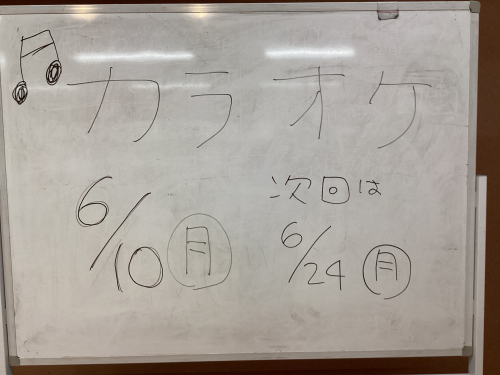 カラオケ
6/10 月
次回は
6/24 月